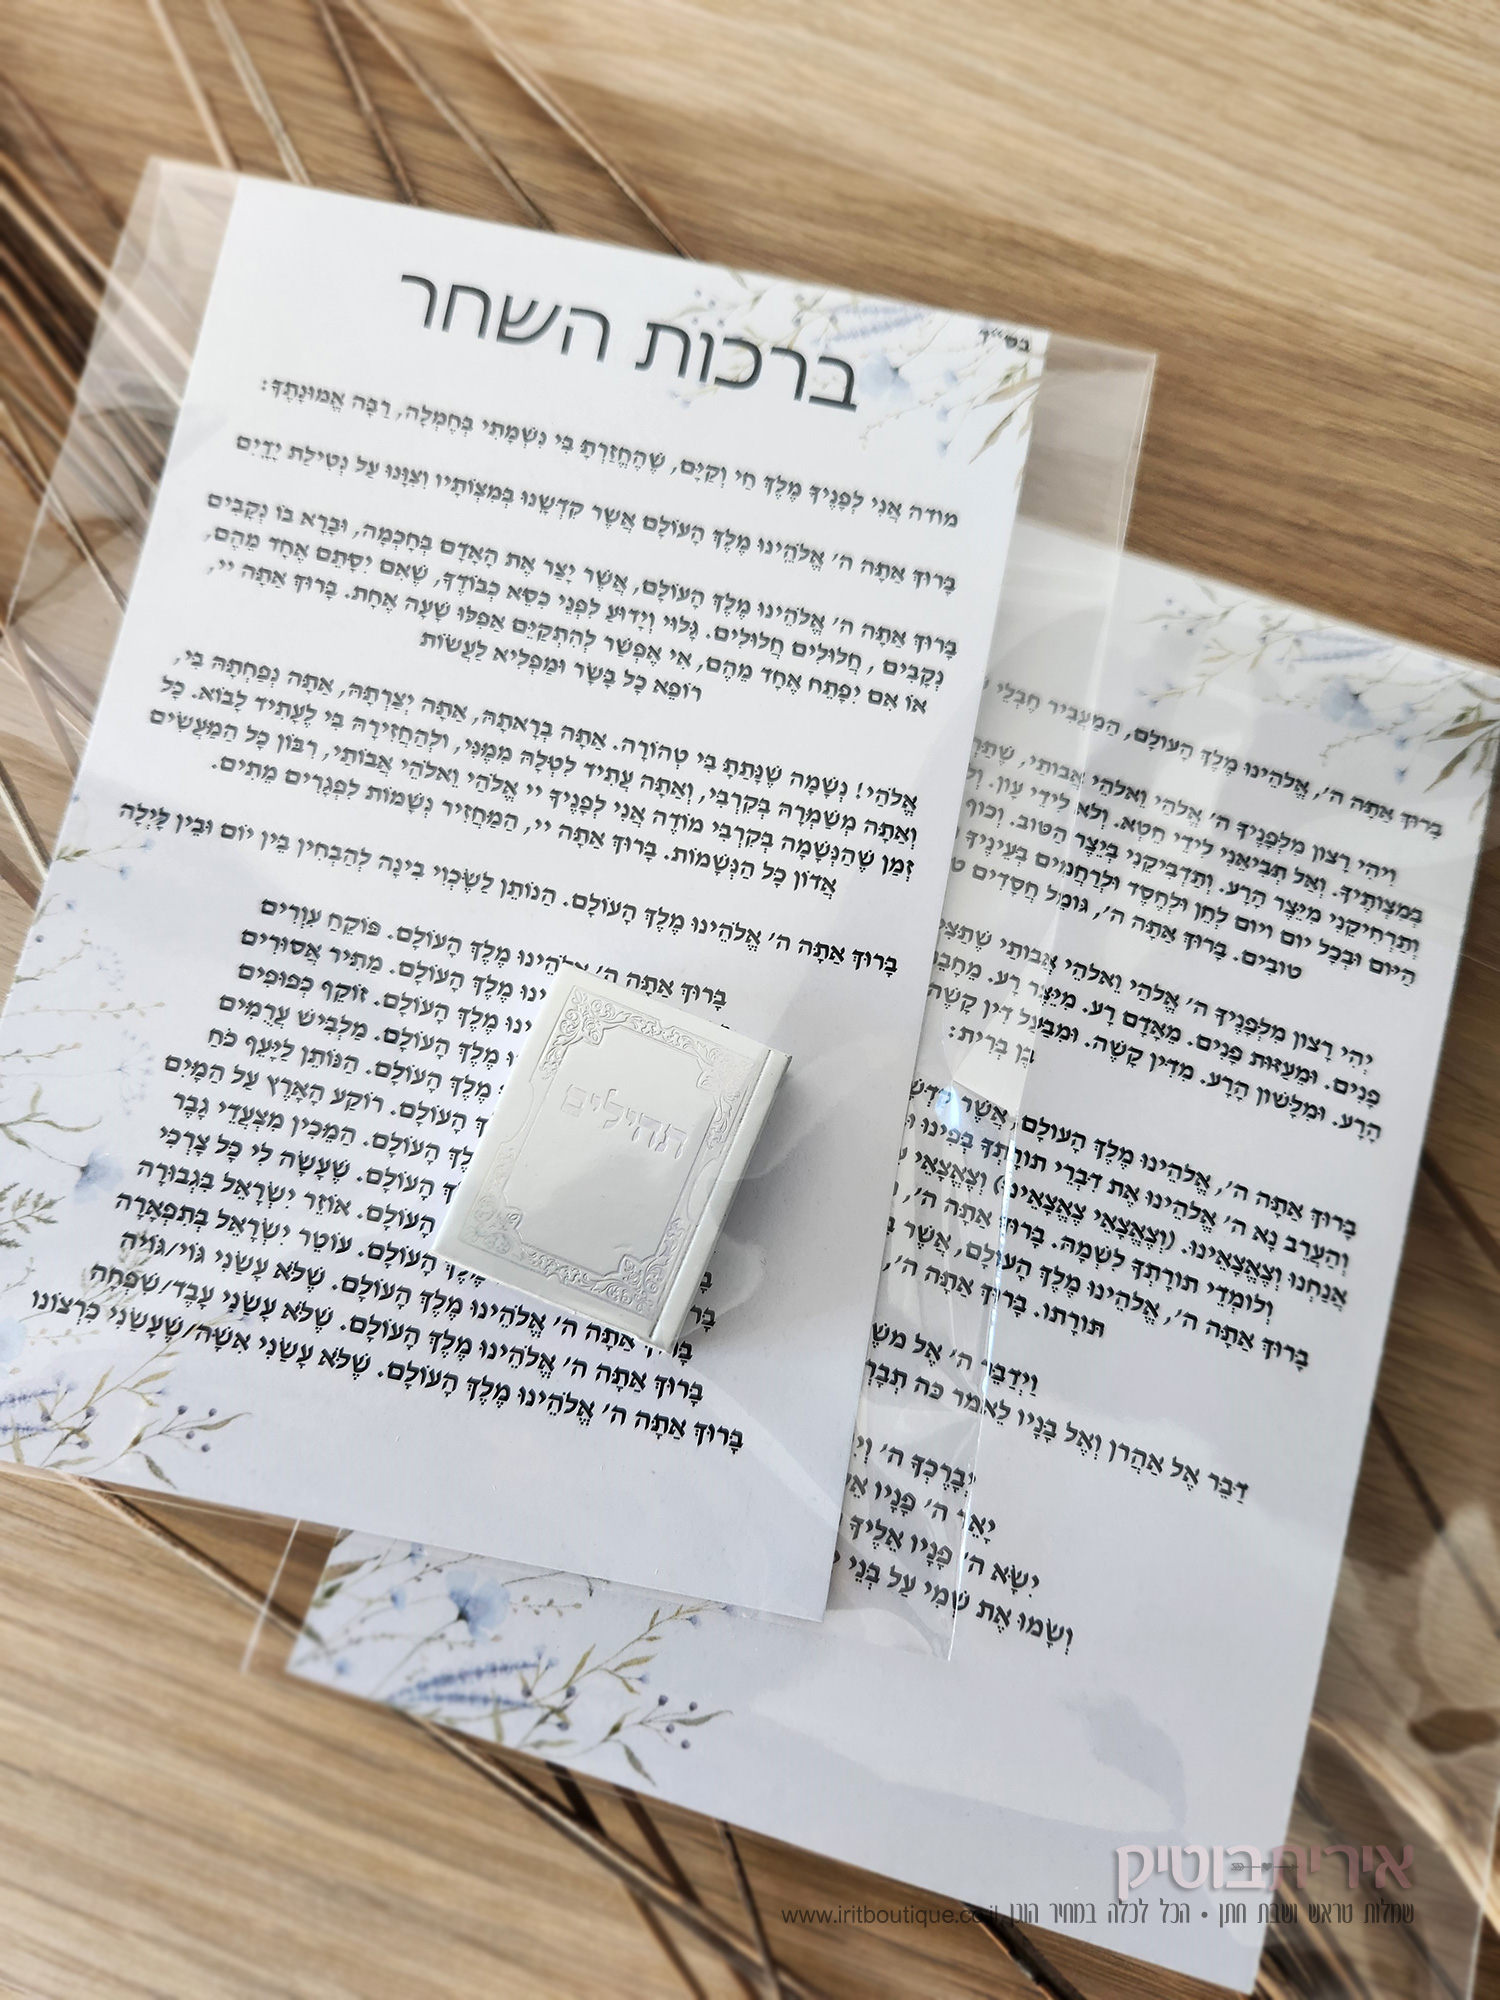 בס"ד
ברכות השחר
מודה אֲנִי לְפָנֶיךָ מֶלֶךְ חַי וְקַיָּם, שֶׁהֶחֱזַרְתָּ בִּי נִשְׁמָתִי בְּחֶמְלָה, רַבָּה אֱמוּנָתֶךָ:
בָּרוּךְ אַתָּה ה' אֱלֹהֵינוּ מֶלֶךְ הָעוֹלָם אֲשֶׁר קִדְּשָׁנוּ בְּמִצְוֹתָיו וְצִוָּנוּ עַל נְטִילַת יָדַיִם
בָּרוּךְ אַתָּה ה' אֱלֹהֵינוּ מֶלֶךְ הָעוֹלָם, אֲשֶׁר יָצַר אֶת הָאָדָם בְּחָכְמָה, וּבָרָא בוֹ נְקָבִים
נְקָבִים , חֲלוּלִים חֲלוּלִים. גָּלוּי וְיָדוּעַ לִפְנֵי כִסֵּא כְבוֹדֶךָ, שֶׁאִם יִסָּתֵם אֶחָד מֵהֶם,
אוֹ אִם יִפָּתֵחַ אֶחָד מֵהֶם, אִי אֶפְשַׁר לְהִתְקַיֵּם אֲפִלּוּ שָׁעָה אֶחָת. בָּרוּךְ אַתָּה יי,
רוֹפֵא כָל בָּשָׂר וּמַפְלִיא לַעֲשׂוֹת
אֱלֹהַי! נְשָׁמָה שֶׁנָּתַתָּ בִּי טְהוֹרָה. אַתָּה בְרָאתָהּ, אַתָּה יְצַרְתָּהּ, אַתָּה נְפַחְתָּהּ בִּי,
וְאַתָּה מְשַׁמְּרָהּ בְּקִרְבִּי, וְאַתָּה עָתִיד לִטְּלָהּ מִמֶּנִּי, וּלְהַחֲזִירָהּ בִּי לֶעָתִיד לָבוֹא. כָּל
זְמַן שֶׁהַנְּשָׁמָה בְּקִרְבִּי מוֹדֶה אֲנִי לְפָנֶיךָ יי אֱלֹהַי וֵאלֹהֵי אֲבוֹתַי, רִבּוֹן כָּל הַמַּעֲשִׂים
אֲדוֹן כָּל הַנְּשָׁמוֹת. בָּרוּךְ אַתָּה יי, הַמַּחֲזִיר נְשָׁמוֹת לִפְגָרִים מֵתִים.
בָּרוּךְ אַתָּה ה' אֱלֹהֵינוּ מֶלֶךְ הָעוֹלָם. הַנּוֹתֵן לַשֶּׂכְוִי בִינָה לְהַבְחִין בֵּין יוֹם וּבֵין לָיְלָה
בָּרוּךְ אַתָּה ה' אֱלֹהֵינוּ מֶלֶךְ הָעוֹלָם. פּוֹקֵחַ עִוְרִים
מֶלֶךְ הָעוֹלָם. מַתִּיר אֲסוּרִים
מֶלֶךְ הָעוֹלָם. זוֹקֵף כְּפוּפִים
מֶלֶךְ הָעוֹלָם. מַלְבִּישׁ עֲרֻמִּים
מֶלֶךְ הָעוֹלָם. הַנּוֹתֵן לַיָּעֵף כֹּחַ
הָעוֹלָם. רוֹקַע הָאָרֶץ עַל הַמָּיִם
הָעוֹלָם. הַמֵּכִין מִצְעֲדֵי גָבֶר
הָעוֹלָם. שֶׁעָשָׂה לִי כָּל צָרְכִּי
הָעוֹלָם. אוֹזֵר יִשְׂרָאֵל בִּגְבוּרָה
הָעוֹלָם. עוֹטֵר יִשְׂרָאֵל בְּתִפְאָרָה
אַתָּה ה' אֱלֹהֵינוּ מֶלֶךְ הָעוֹלָם. שֶׁלֹּא עָשַׂנִי גּוֹי/גּוֹיָה
בָּרוּךְ אַתָּה ה' אֱלֹהֵינוּ מֶלֶךְ הָעוֹלָם. שֶׁלֹּא עָשַׂנִי עָבֶד/שִׁפְחָה
בָּרוּךְ אַתָּה ה' אֱלֹהֵינוּ מֶלֶךְ הָעוֹלָם. שֶׁלֹּא עָשַׂנִי אִשָּׁה/שֶׁעָשַׂנִי כִּרְצוֹנוֹ
תהילים
בָּרוּךְ אַתָּה ה', אֱלֹהֵינוּ מֶלֶךְ הָעוֹלָם, הַמַּעֲבִיר חֶבְלֵי
וִיהִי רָצוֹן מִלְּפָנֶיךָ ה' אֱלֹהַי וֵאלֹהֵי אֲבוֹתַי,
בְּמִצְוֹתֶיךָ. וְאַל תְּבִיאֵנִי לִידֵי חֵטְא. וְלֹא לִידֵי עָוֹן.
וְתַרְחִיקֵנִי מִיֵּצֶר הָרָע. וְתַדְבִּיקֵנִי בְּיֵצֶר הַטּוֹב. וְכוֹף
הַיּוֹם וּבְכָל יוֹם וָיוֹם לְחֵן וּלְחֶסֶד וּלְרַחֲמִים בְּעֵינֶיךָ
טוֹבִים. בָּרוּךְ אַתָּה ה', גּוֹמֵל חֲסָדִים
יְהִי רָצוֹן מִלְּפָנֶיךָ ה' אֱלֹהַי וֵאלֹהֵי אֲבוֹתַי
פָנִים. וּמֵעַזּוּת פָּנִים. מֵאָדָם רָע. מִיֵּצֶר רָע.
הָרָע. וּמִלָּשׁוֹן הָרָע. מִדִּין קָשֶׁה. וּמִבַּעַל דִּין קָשֶׁה
בֶן בְּרִית:
בָּרוּךְ אַתָּה ה', אֱלֹהֵינוּ מֶלֶךְ הָעוֹלָם, אֲשֶׁר
וְהַעֲרֵב נָא ה' אֱלֹהֵינוּ אֶת דִּבְרֵי תוֹרָתְךָ בְּפִינוּ
אֲנַחְנוּ וְצֶאֱצָאֵינוּ. (וְצֶאֱצָאֵי צֶאֱצָאֵינוּ) וְצֶאֱצָאֵי
וְלוֹמְדֵי תוֹרָתְךָ לִשְׁמָהּ. בָּרוּךְ אַתָּה ה',
בָּרוּךְ אַתָּה ה', אֱלֹהֵינוּ מֶלֶךְ הָעוֹלָם, אֲשֶׁר
תּוֹרָתוֹ. בָּרוּךְ אַתָּה ה',
וַיְדַבֵּר ה' אֶל
דַּבֵּר אֶל אַהֲרֹן וְאֶל בָּנָיו לֵאמֹר כֹּה
יְבָרֶכְךָ ה'
יָאֵר ה' פָּנָיו
יִשָּׂא ה' פָּנָיו אֵלֶיךָ
וְשָׂמוּ אֶת שְׁמִי עַל בְּנֵי
אירית בוטיק
שמלות טראש ושבת חתן • הכל לכלה במחיר הוגן www.iritboutique.co.il